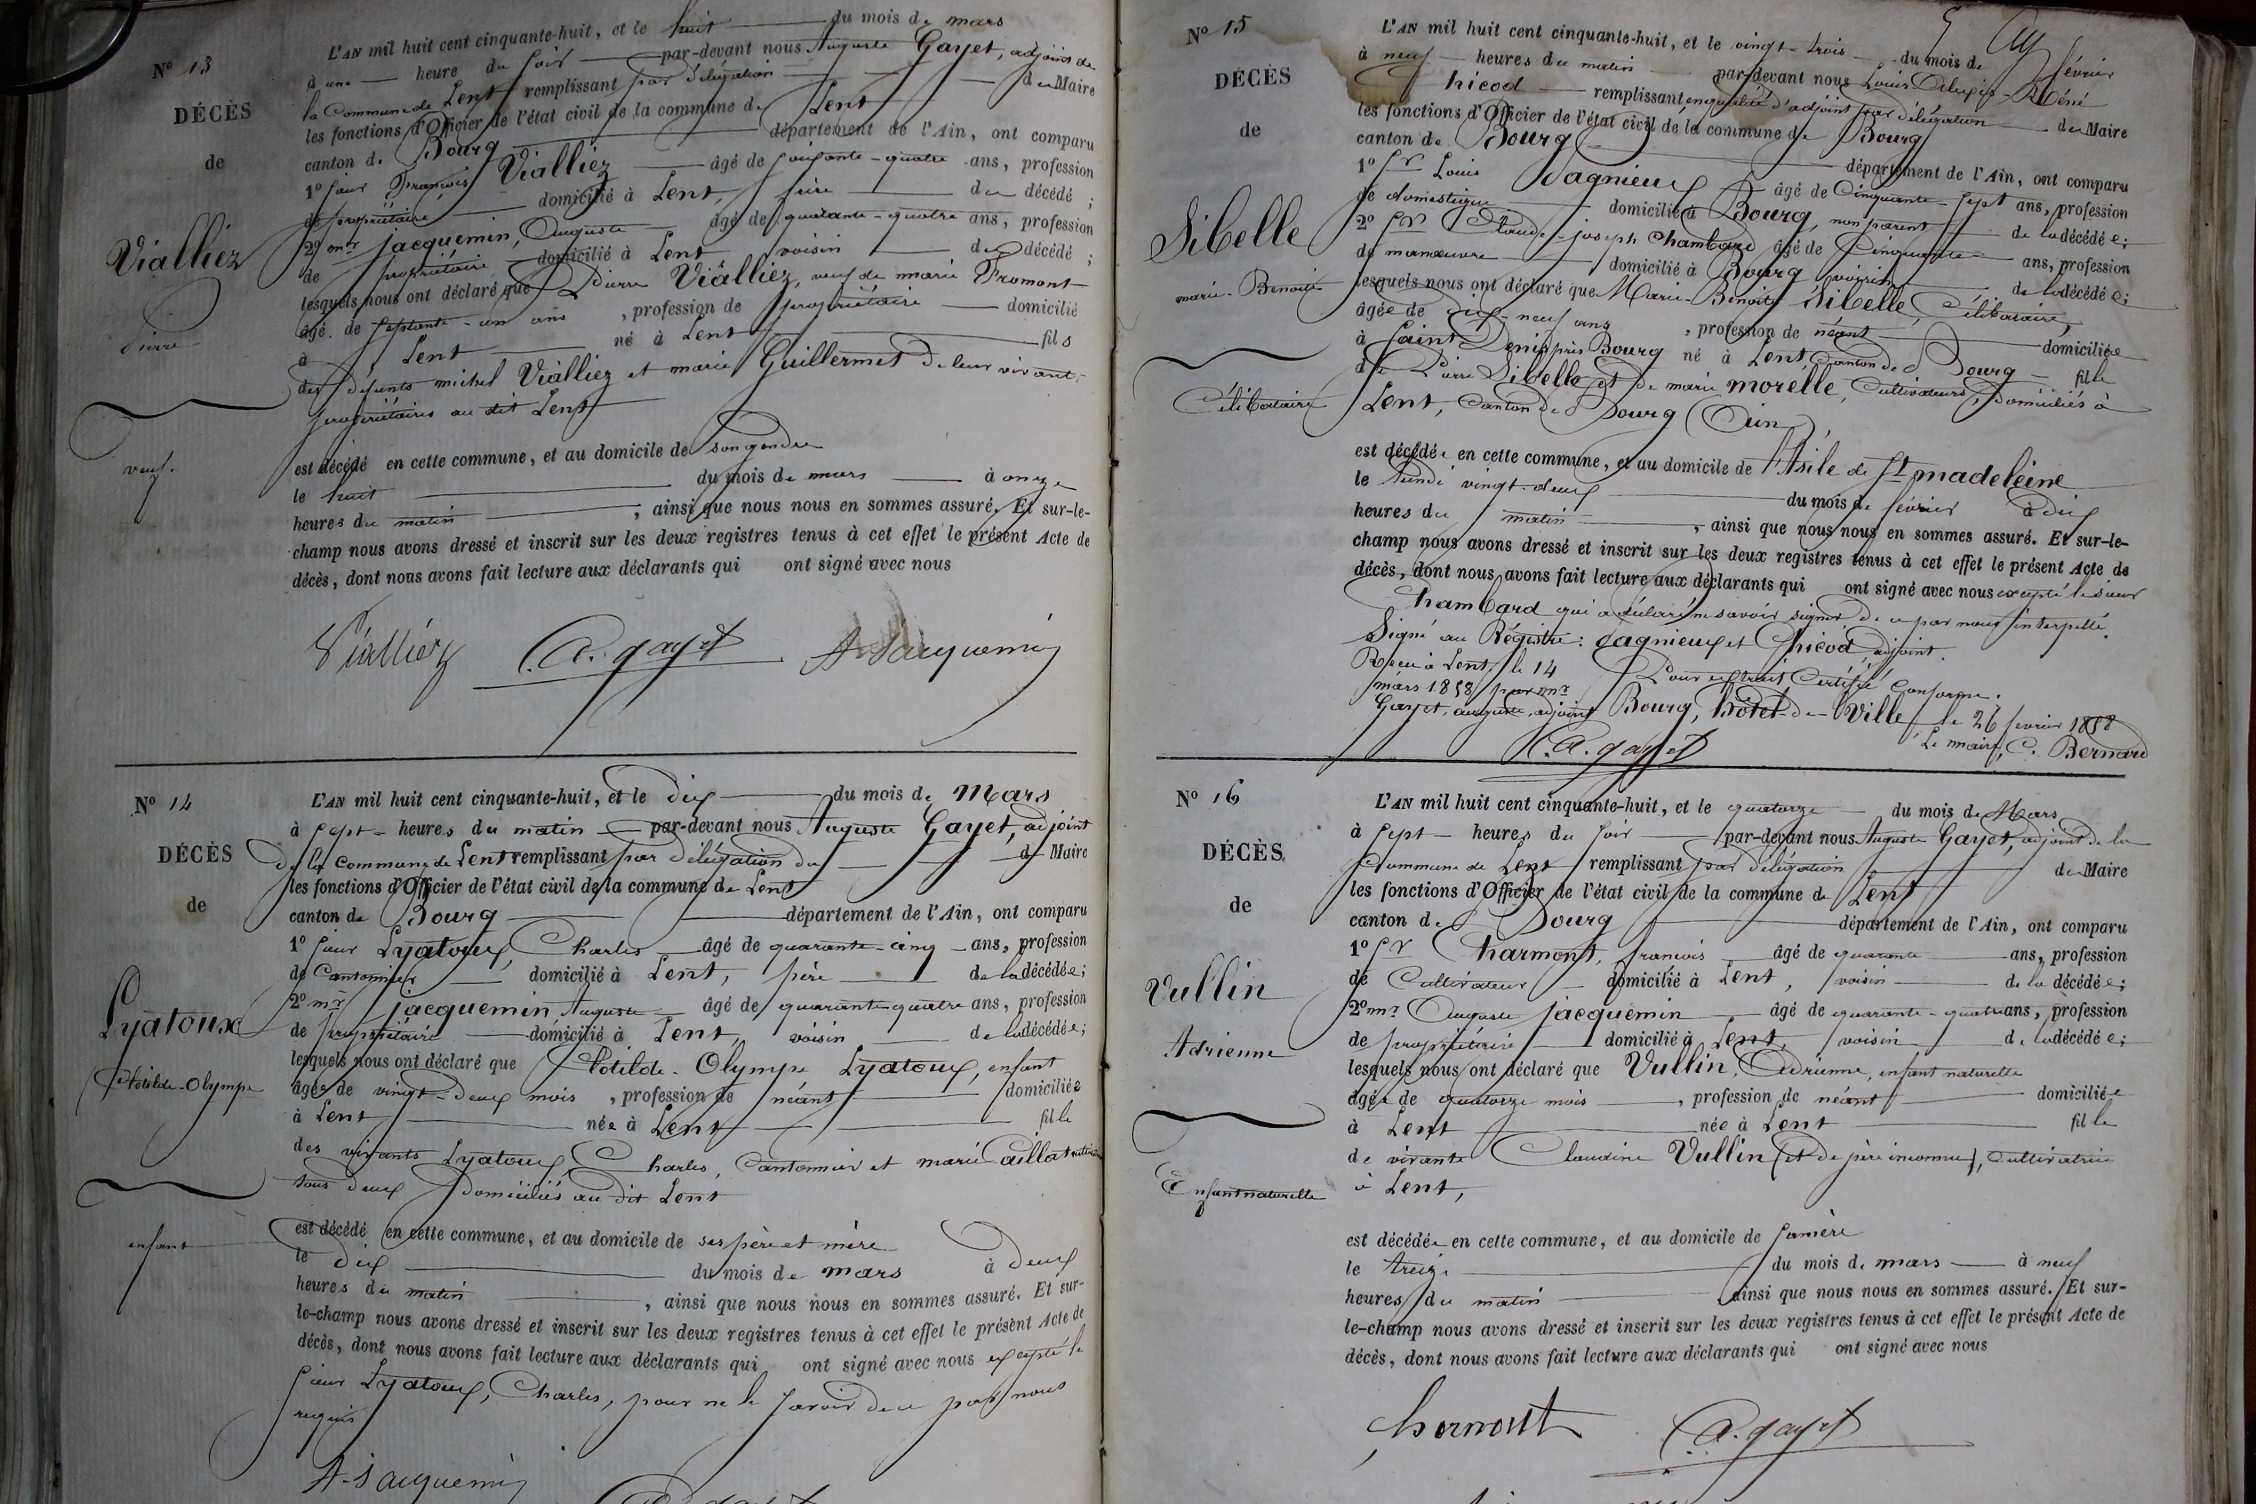 No 13
DÉCÈS
de
Vialliez
Pierre
veuf
L'AN mil huit cent cinquante-huit, et le huit du mois de mars
à une heure du soir par-devant nous Auguste Gayet, adjoint de
la Commune de Lent remplissant par délégation du Maire
les fonctions d'Officier de l'état civil de la commune de Lent
canton de Bourg département de l'Ain, ont comparu
1o sieur François Vialliez âgé de soixante-quatre ans, profession
de propriétaire domicilié à Lent, frère du décédé ;
2o mr jacquemin, Auguste âgé de quarante-quatre ans, profession
de propriétaire domicilié à Lent voisin du décédé ;
lesquels nous ont déclaré que Pierre Vialliez, veuf de marie Fromont
âgé de septante-un ans, profession de propriétaire domicilié
à Lent né à Lent fils
des défunts michel Vialliez et marie Guillermet de leur vivant
propriétaires au dit Lent
est décédé en cette commune, et au domicile de son gendre
le huit du mois de mars à onze
heures du matin, ainsi que nous nous en sommes assuré. Et sur-le-
champ nous avons dressé et inscrit sur les deux registres tenus à cet effet le présent Acte de
décès, dont nous avons fait lecture aux déclarants qui ont signé avec nous
Vialliez A. gayet A Jacquemin
No 14
DÉCÈS
de
Lyatoux
Clotilde-Olympe
enfant
L'AN mil huit cent cinquante-huit, et le dix du mois de Mars
à sept heures du matin par-devant nous Auguste Gayet, adjoint
de la Commune de Lent remplissant par délégation du d Maire
les fonctions d'Officier de l'état civil de la commune de Lent
canton de Bourg département de l'Ain, ont comparu
1o sieur Lyatoux, Charles âgé de quarante-cinq ans, profession
de Cantonnier domicilié à Lent, père de la décédée ;
2o mr jacquemin, Auguste âgé de quarante-quatre ans, profession
de propriétaire domicilié à Lent, voisin de la décédée ;
lesquels nous ont déclaré que Clotilde-Olympe Lyatoux, enfant
âgée de vingt-deux mois, profession de néant domiciliée
à Lent née à Lent fille
des vivants Lyatoux, Charles, Cantonnier et marie Caillat
tous deux domiciliés au dit Lent
est décédé en cette commune, et au domicile de ses père et mère
le dix du mois de mars à deux
heures du matin, ainsi que nous nous en sommes assuré. Et sur-
le-champ nous avons dressé et inscrit sur les deux registres tenus à cet effet le présent Acte de
décès, dont nous avons fait lecture aux déclarants qui ont signé avec nous excepté le
sieur Lyatoux, Charles, pour ne le savoir de ce par nous
requis
A. Jacquemin
No 15
DÉCÈS
de
Sibelle
marie-Benoite
Célibataire
L'AN mil huit cent cinquante-huit, et le vingt-trois du mois de février
à neuf heures du matin par-devant nous Louis Aléxis-Réné
Chicod remplissant en qualité d'adjoint par délégation du Maire
les fonctions d'Officier de l'état civil de la commune de Bourg
canton de Bourg département de l'Ain, ont comparu
1o Sr Louis Dagnieux âgé de Cinquante-sept ans, profession
de domestique domicilié à Bourg, non parent de la décédée ;
2o Sr Claude-joseph Chambard âgé de Cinquante ans, profession
de manœuvre domicilié à Bourg voisin de la décédée ;
lesquels nous ont déclaré que Marie-Benoite Sibelle, Célibataire,
âgée de dix-neuf ans, profession de néant domiciliée
à Saint Denis près Bourg né à Lent, Canton de Bourg fille
de Pierre Sibelle et de marie morelle, Cultivateurs, domiciliés à
Lent, Canton de Bourg (Ain),
est décédée en cette commune, et au domicile de l'Asile de Ste madeleine
le lundi vingt-deux du mois de février à dix
heures du matin, ainsi que nous nous en sommes assuré. Et sur-le-
champ nous avons dressé et inscrit sur les deux registres tenus à cet effet le présent Acte de
décès, dont nous avons fait lecture aux déclarants qui ont signé avec nous excepté le sieur
Chambard qui a déclaré ne savoir signer de ce par nous interpellé.
Signé au Régistre : Dagnieux et Chicod, adjoint.
Reçu à Lent, le 14 Pour extrait Certifié Conforme.
mars 1858 par mr
Gayet, auguste, adjoint Bourg, hôtel-de-Ville, le 26 février 1858
A. gayet Le maire, C. Bernard
No 16
DÉCÈS
de
Vullin
Adrienne
Enfant naturelle
L'AN mil huit cent cinquante-huit, et le quatorze du mois de Mars
à sept heures du soir par-devant nous Auguste Gayet, adjoint de la
Commune de Lent remplissant par délégation du Maire
les fonctions d'Officier de l'état civil de la commune de Lent
canton de Bourg département de l'Ain, ont comparu
1o Sr Charmont, françois âgé de quarante ans, profession
de Cultivateur domicilié à Lent, voisin de la décédée ;
2o mr Auguste jacquemin âgé de quarante-quatre ans, profession
de propriétaire domicilié à Lent, voisin de la décédée ;
lesquels nous ont déclaré que Vullin, Adrienne, enfant naturelle
âgée de quatorze mois, profession de néant domiciliée
à Lent née à Lent fille
de vivante Claudine Vullin (et de père inconnu), cultivatrice
à Lent,
est décédée en cette commune, et au domicile de sa mère
le treize du mois de mars à neuf
heures du matin ainsi que nous nous en sommes assuré. Et sur-
le-champ nous avons dressé et inscrit sur les deux registres tenus à cet effet le présent Acte de
décès, dont nous avons fait lecture aux déclarants qui ont signé avec nous
Charmont A. gayet